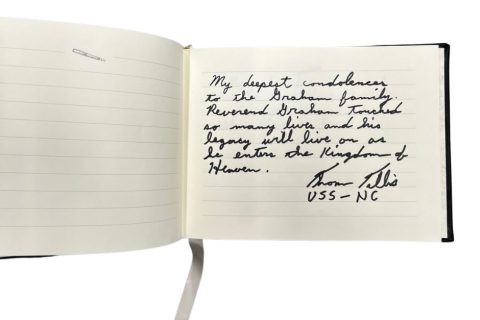 My deepest condolences
to the Graham family.
Reverend Graham touched
so many lives and his
legacy will live on as
he enters the Kingdom of
Heaven.
Thom Tillis
USS-NC